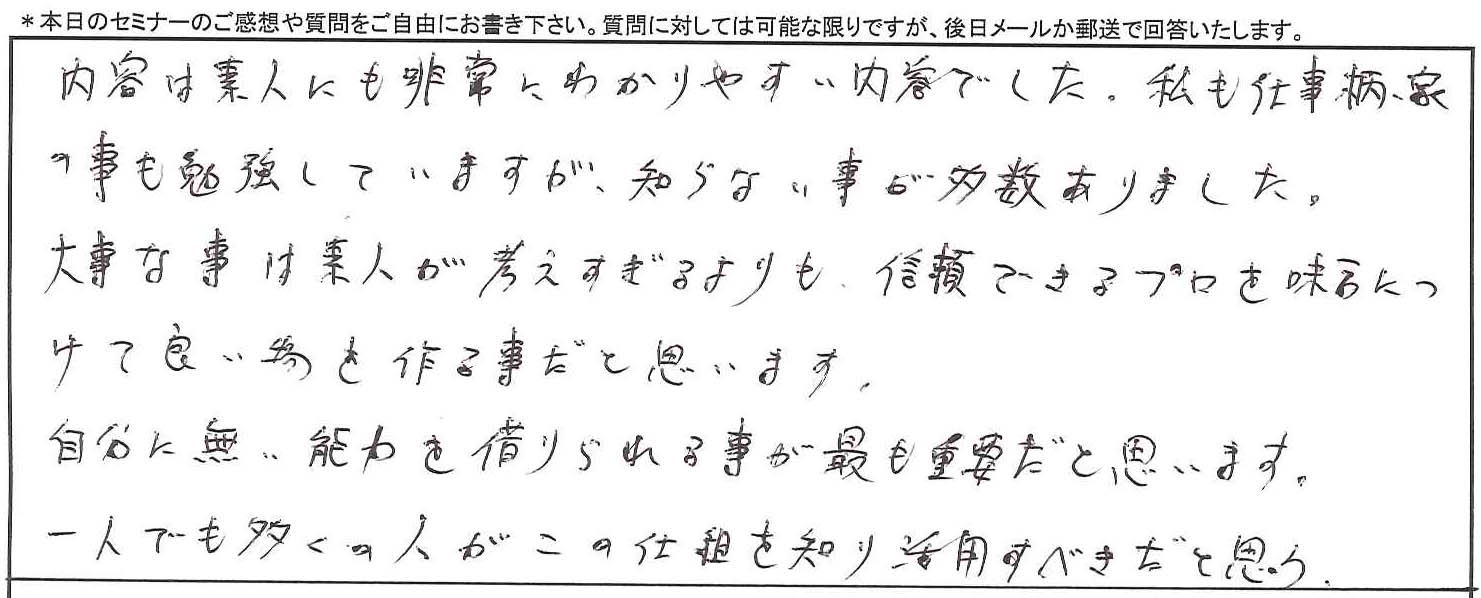 ＊本日のセミナーのご感想や質問をご自由にお書き下さい。質問に対しては可能な限りですが、後日メールか郵送で回答いたします。
内容は素人にも非常にわかりやすい内容でした。私も仕事柄、家
の事も勉強していますが、知らない事が多数ありました。
大事な事は素人が考えすぎるよりも、信頼できるプロを味方につ
けて良い物を作る事だと思います。
自分に無い能力を借りられる事が最も重要だと思います。
一人でも多くの人がこの仕組を知り活用すべきだと思う。